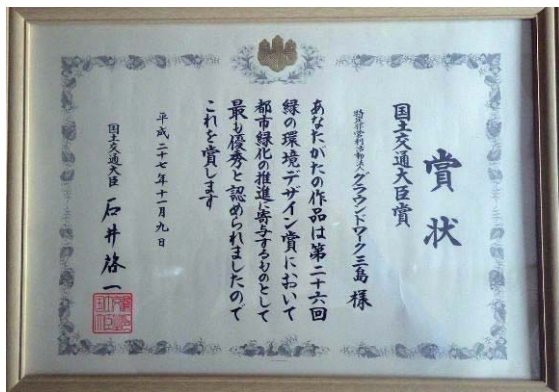 賞状
国土交通大臣賞
特定非営利活動法人グラウンドワーク三島 様
あなたがたの作品は第二十六回
緑の環境デザイン賞において
都市緑化の推進に寄与するものとして
最も優秀と認められましたので
これを賞します
平成二十七年十一月九日
国土交通大臣 石井啓一